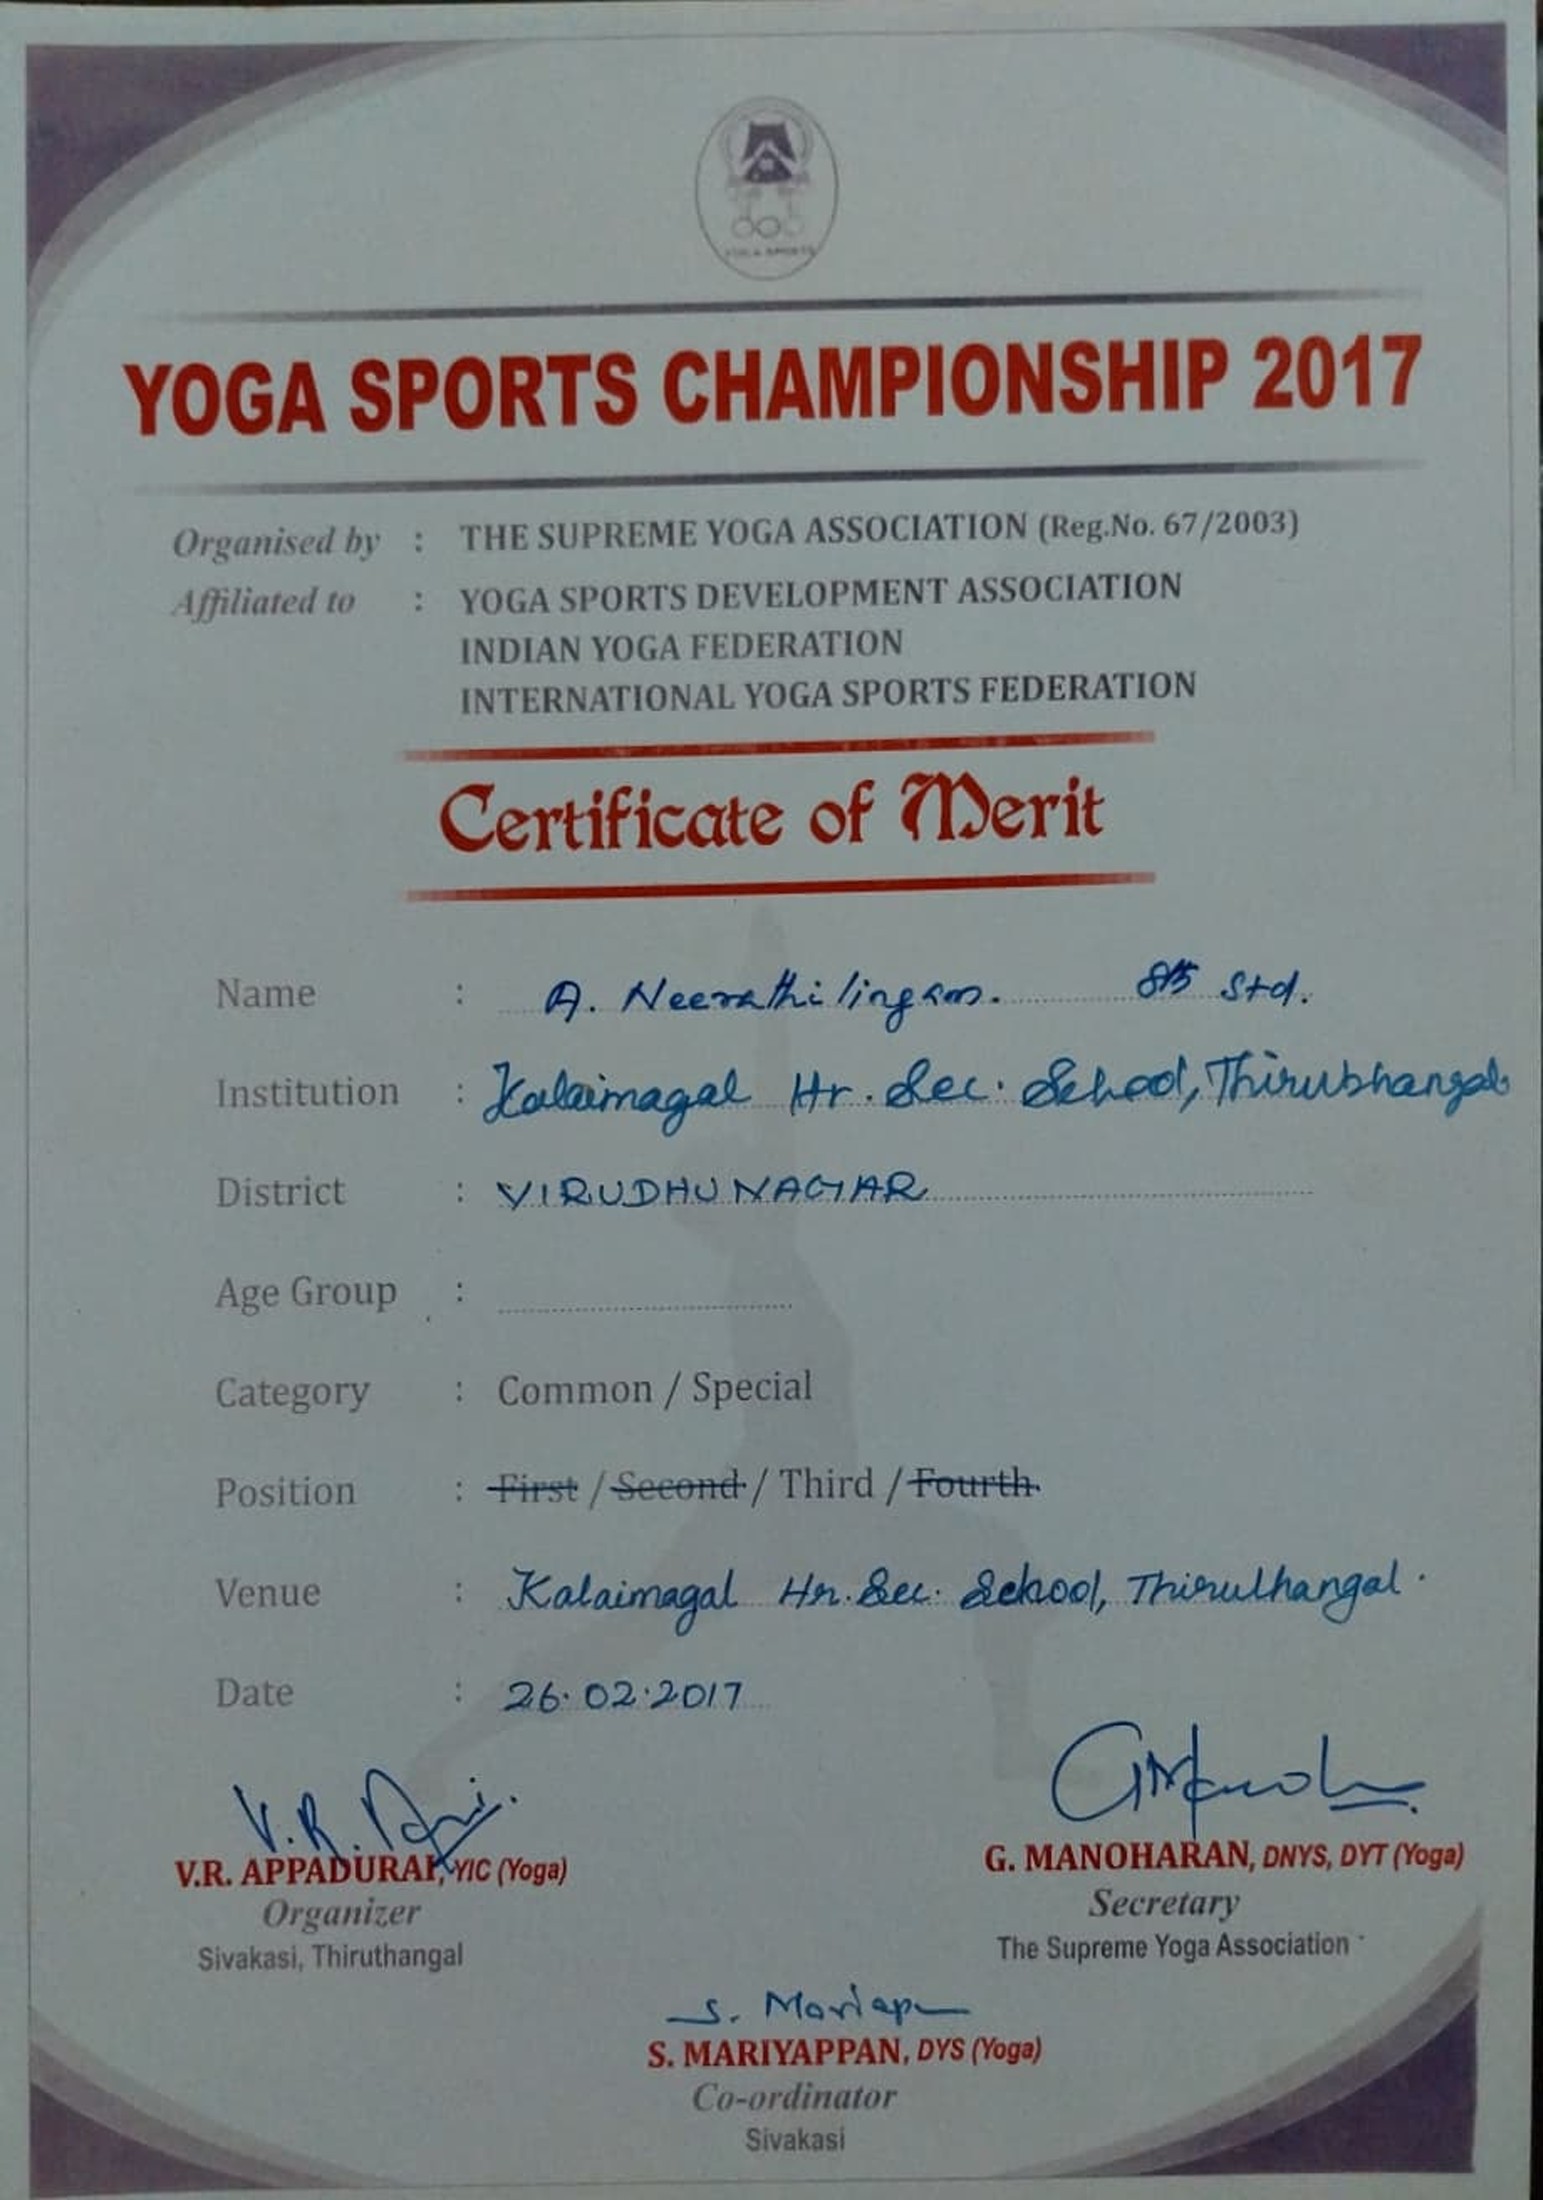 YOGA SPORTS
YOGA SPORTS CHAMPIONSHIP 2017
Organised by : THE SUPREME YOGA ASSOCIATION (Reg.No. 67/2003)
Affiliated to : YOGA SPORTS DEVELOPMENT ASSOCIATION
INDIAN YOGA FEDERATION
INTERNATIONAL YOGA SPORTS FEDERATION
Certificate of Merit
Name : A. Neerathilingam. 8th Std.
Institution : Kalaimagal Hr. Sec. School, Thiruthangal
District : VIRUDHUNAGAR
Age Group :
Category : Common / Special
Position : First / Second / Third / Fourth
Venue : Kalaimagal Hr. Sec. School, Thiruthangal.
Date : 26.02.2017
V.R. APPADURAI, YIC (Yoga)
Organizer
Sivakasi, Thiruthangal
G. MANOHARAN, DNYS, DYT (Yoga)
Secretary
The Supreme Yoga Association
S. MARIYAPPAN, DYS (Yoga)
Co-ordinator
Sivakasi